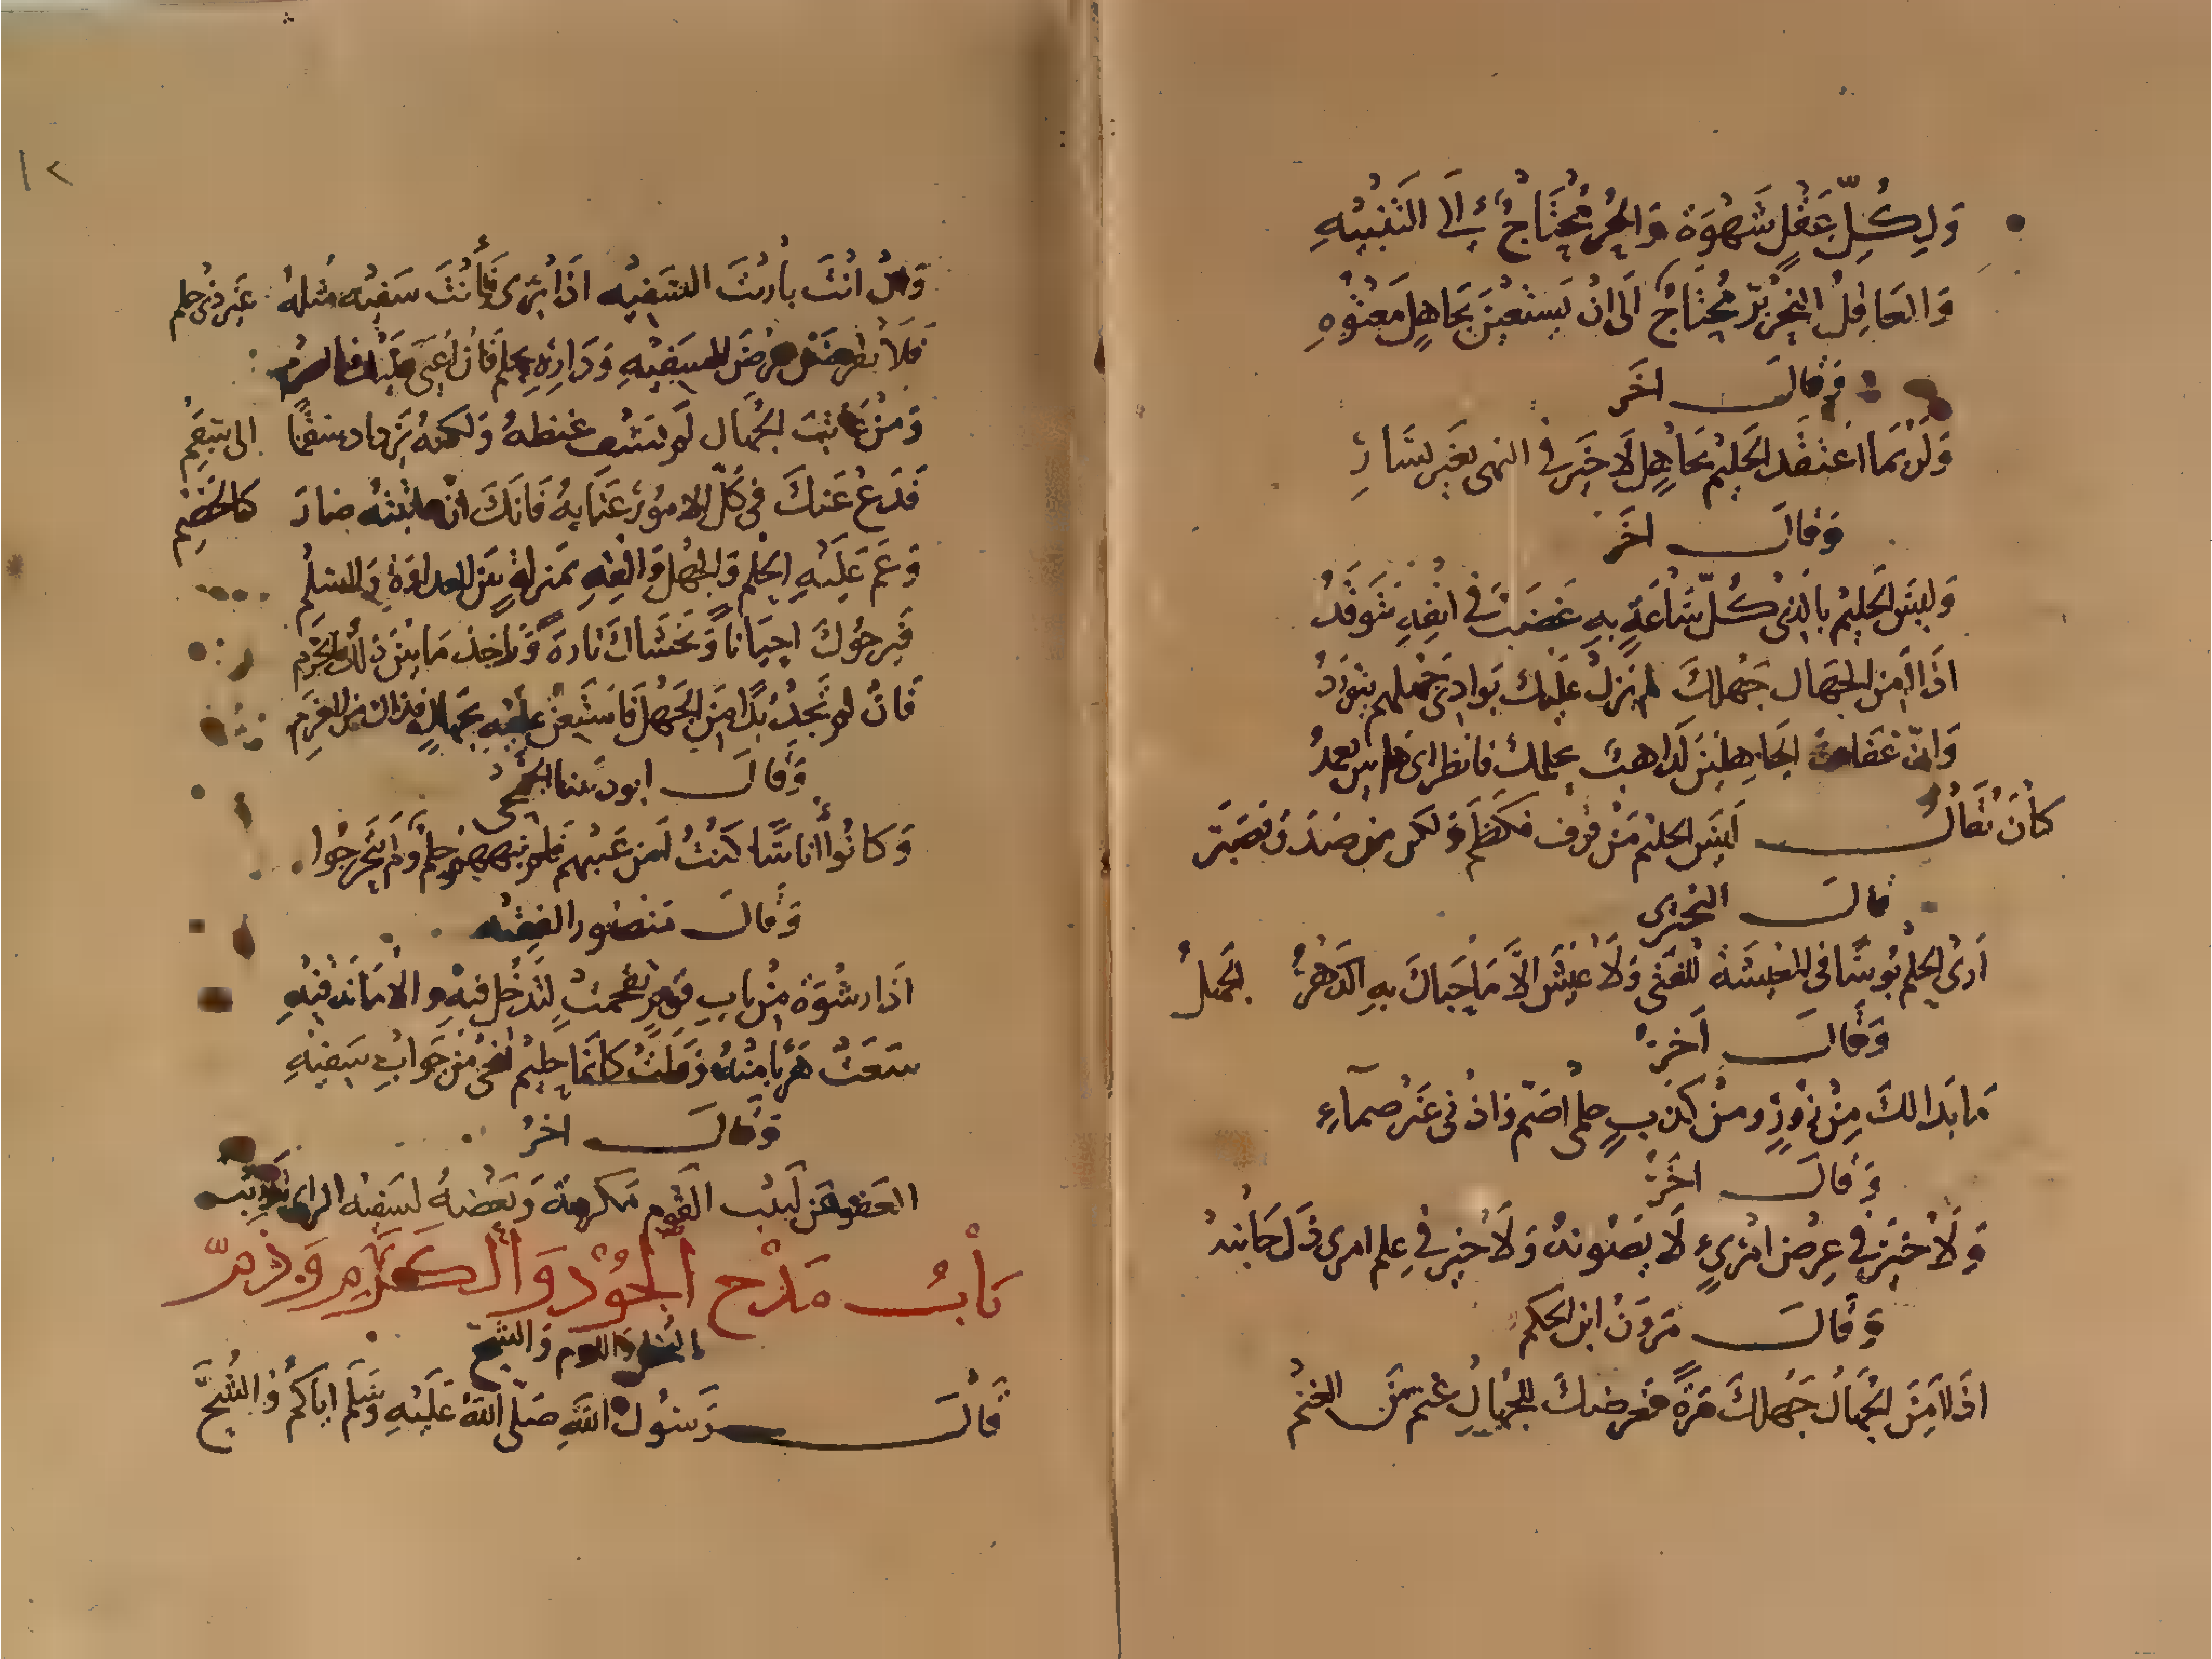 وَلِكُلِّ عَقْلٍ شَهْوَةٌ وَالحُرُّ مُحْتَاجٌ إِلَى التَنْبِيْهِ
وَالعَاقِلُ النِحْرِيْرُ مُحْتَاجٌ الَى انْ يَسْتَعِيْنَ بجَاهِلٍ مَعْتُوْهِ
وَقَالَ اخَر
وَلَرُبَمَا اعْتَضَد الحَلِيْمُ بجَاهِلٍ لَا خَيَر في اليمنى بغَير يَسَارِ
وَقَالَ اخَر
وَلَيسَ الحَلِيْمُ بالذِى كُلّ سَاعَةٍ بهِ غَضَبٌ في انْفِهِ يَتَوَقَّدُ
اذَا المن الجهال جَهْلكَ لم تزلْ عليك بَوادِي جَهْلهم تتوَرَّدُ
وَانّ الجَاهِلِيْنَ لَذاهِبٌ بحِلمك فانظر اى
كانَ يُقَالُ لَيسَ الحليْم مَنْ فكظَمَ وَلكن من فصَبَر
قالَ البحْترى
اَرىَ الحِلْم بُوسًا في المعيْشَة للْفَتَى وَلَا عَيْشَ الَّا مَا حَبَاكَ بهِ الدَهْرُ الجَهلُ
وَقَالَ آخَر
مَا بَدا لكَ مِنْ زُوْرٍ ومنْ كَذبٍ حِلْمى أَصَمّ وَاذْنى غَيْر صَمآءِ
وَقَالَ اخَر
وَلَا خَيرَ في عِرْض امْرئٍ لَا يَصُونهُ وَلَا خَيْرَ في حِلم امرى ذَلَّ جَانبُهُ
وَقَالَ مَروَنُ ابن الحكم
اذَا امِنَ الجُهَّالُ جَهْلكَ مَرّةً فعَرضكَ للجُهالِ غنم مِنَ الغنْم
١٢
وَانْ انْتَ بارَيْتَ السَفِيْه اذَا جَرَى فَأَنْتَ سَفِيْه مثلهُ غَير ذِى حِلم
فَلَا تَعْرِضَنْ عِرْضَ السَفِيْهِ وَدَارِهِ بحِلم فَانْ اعْيَى عَلَيْك فبالصرْمِ
وَمَنْ عَاتبَ الجُهَال لَم يَشْفِ غيظهُ وَلَكنهُ يَزداد سقمًا الى سُقْمِ
فَدَعْ عَنكَ في كلّ الامُوْر عَتَابَهُ فَانكَ انْ عاتبْتَهُ صَارَ كالخَصْمِ
وَغَم عَلَيْهِ الحِلْمَ وَالجَهْل وَالْقَهِ بمَنزلةٍ بَينَ العدَاوَةِ وَالسِلْمِ
فَيَرجُوكَ احْيَاناً وَيَخشَاكَ تَارةً وَتَاخذ مَا بَيْنَ ذلكَ بالحَزْمِ
فَانْ لم تَجدْ بُدّاً مِنَ الجَهْل فَاستَعِنْ عَلَيهِ بجُهالٍ فَذاك من العَزْمِ
وَقَالَ ابودَهبل الجمَحى
وَكَانُوا أُناسًا كنْتُ آمَن غَيْبهم فلم يَنْههُم حِلْم وَلَم يَتَحَرجُوا
وَقَالَ مَنْصُور الفقيْه
اذَا رِشْوَة مِنْ بابِ قَومٍ تَقَحَّمَتْ لِتَدخُل فيْهِ وَالامَانَة فيْهِ
سَعَتْ هَرَباً مِنْهُ وَوَلَّتْ كَانَّها حلِيْمٌ تَنحى مِن جَوَابِ سَفِيْهِ
وَقَالَ اخَر
العَفو عَن لَبيْب القَوْم مَكرمة وَبَعْضهُ لسَفِيْه الراى تَدْرِيْب
بَابُ مَدْحِ الجُوْدِ وَالْكَرَمِ وَذَمّ
البُخلِ وَاللوم وَالشُح
قَالَ رَسُوْل اللَّهِ صَلّى اللَّهُ عَلَيْهِ وَسَلَّم ايَاكُمْ وَالشُحَّ